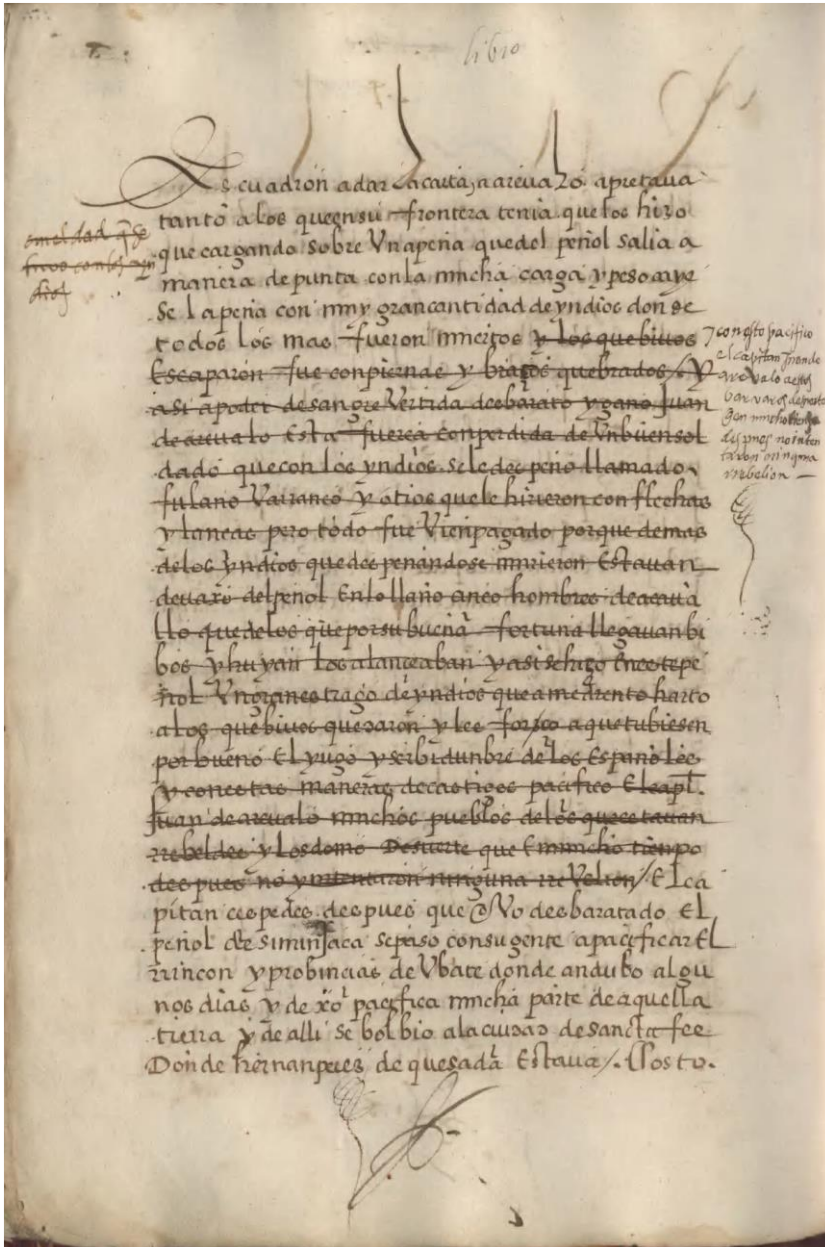 libro
Escuadron a dar la caita, narevalo apretaua
tanto alos queensu frontera tenia quelos hizo
que cargando sobre Vnapeña quedel peñol salia a
manera de punta conla mucha carga ypeso
se lapeña con muy grancantidad deyndios donde
todos los mas fueron muertos y los quebiuos
Escaparon fue conpiernas y braços quebrados / y
asi apoder desangre Vertida desbarato ygano Juan
de areualo Esta fuerca conperdida de Vnbuensol
dado quecon los yndios sele des peño llamado
fulano y otros quele hirieron con flechas
y lancas pero todo fue Vienpagado porque demas
delos yndios quedes penandose murieron Estauan
deuaxo delpeñol Enlo llano cinco hombres deacaua
llo quedelos queporsubuena fortuna llegauanbi
bos yhuyan los alanceaban yasi sehizo Eneste pe
ñol Vngranestrago deyndios queamedrento harto
alos quebiuos quedaron y les forço aquetubiesen
porbueno El yugo yseruidunbre delos Españoles
y conestas maneras decastigos pacifico Elcapi.
Juan deareualo muchos pueblos delos queestauan
rrebeldes y losdomo Desuerte que Enmucho tienpo
despues no yntentaron ninguna rreVelion / Elca
pitan cespedes despues que oVo desbaratado El
peñol de siminjaca sepaso consugente apacificar El
rrincon yprobincias de Vbate donde andubo algu
nos dias y dexo pacifica mucha parte deaquella
tierra y de alli se bolbio alaciudad desancta fee
Donde hernanperes de quesada Estaua /.
crueldad q se
hizo con los yn
dios
con esto pacifico
el capitan Juan de
arevalo aestos
barvaros desuerte
q en mucho tienpo
despues no inten
taron ninguna
rrebelion —